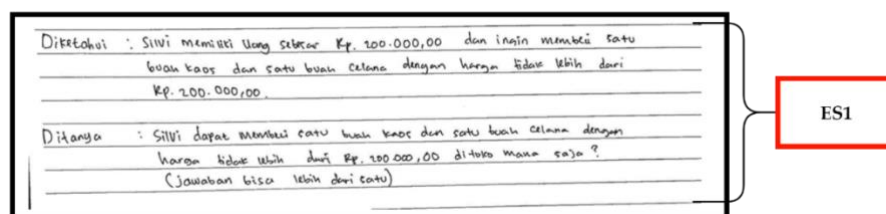 Diketahui : Silvi memiliki Uang sebesar Rp. 200.000,00 dan ingin membeli satu
buah kaos dan satu buah celana dengan harga tidak lebih dari
Rp. 200.000,00.
Ditanya : Silvi dapat membeli satu buah kaos dan satu buah celana dengan
harga tidak lebih dari Rp. 200.000,00 di toko mana saja ?
(jawaban bisa lebih dari satu)
ES1